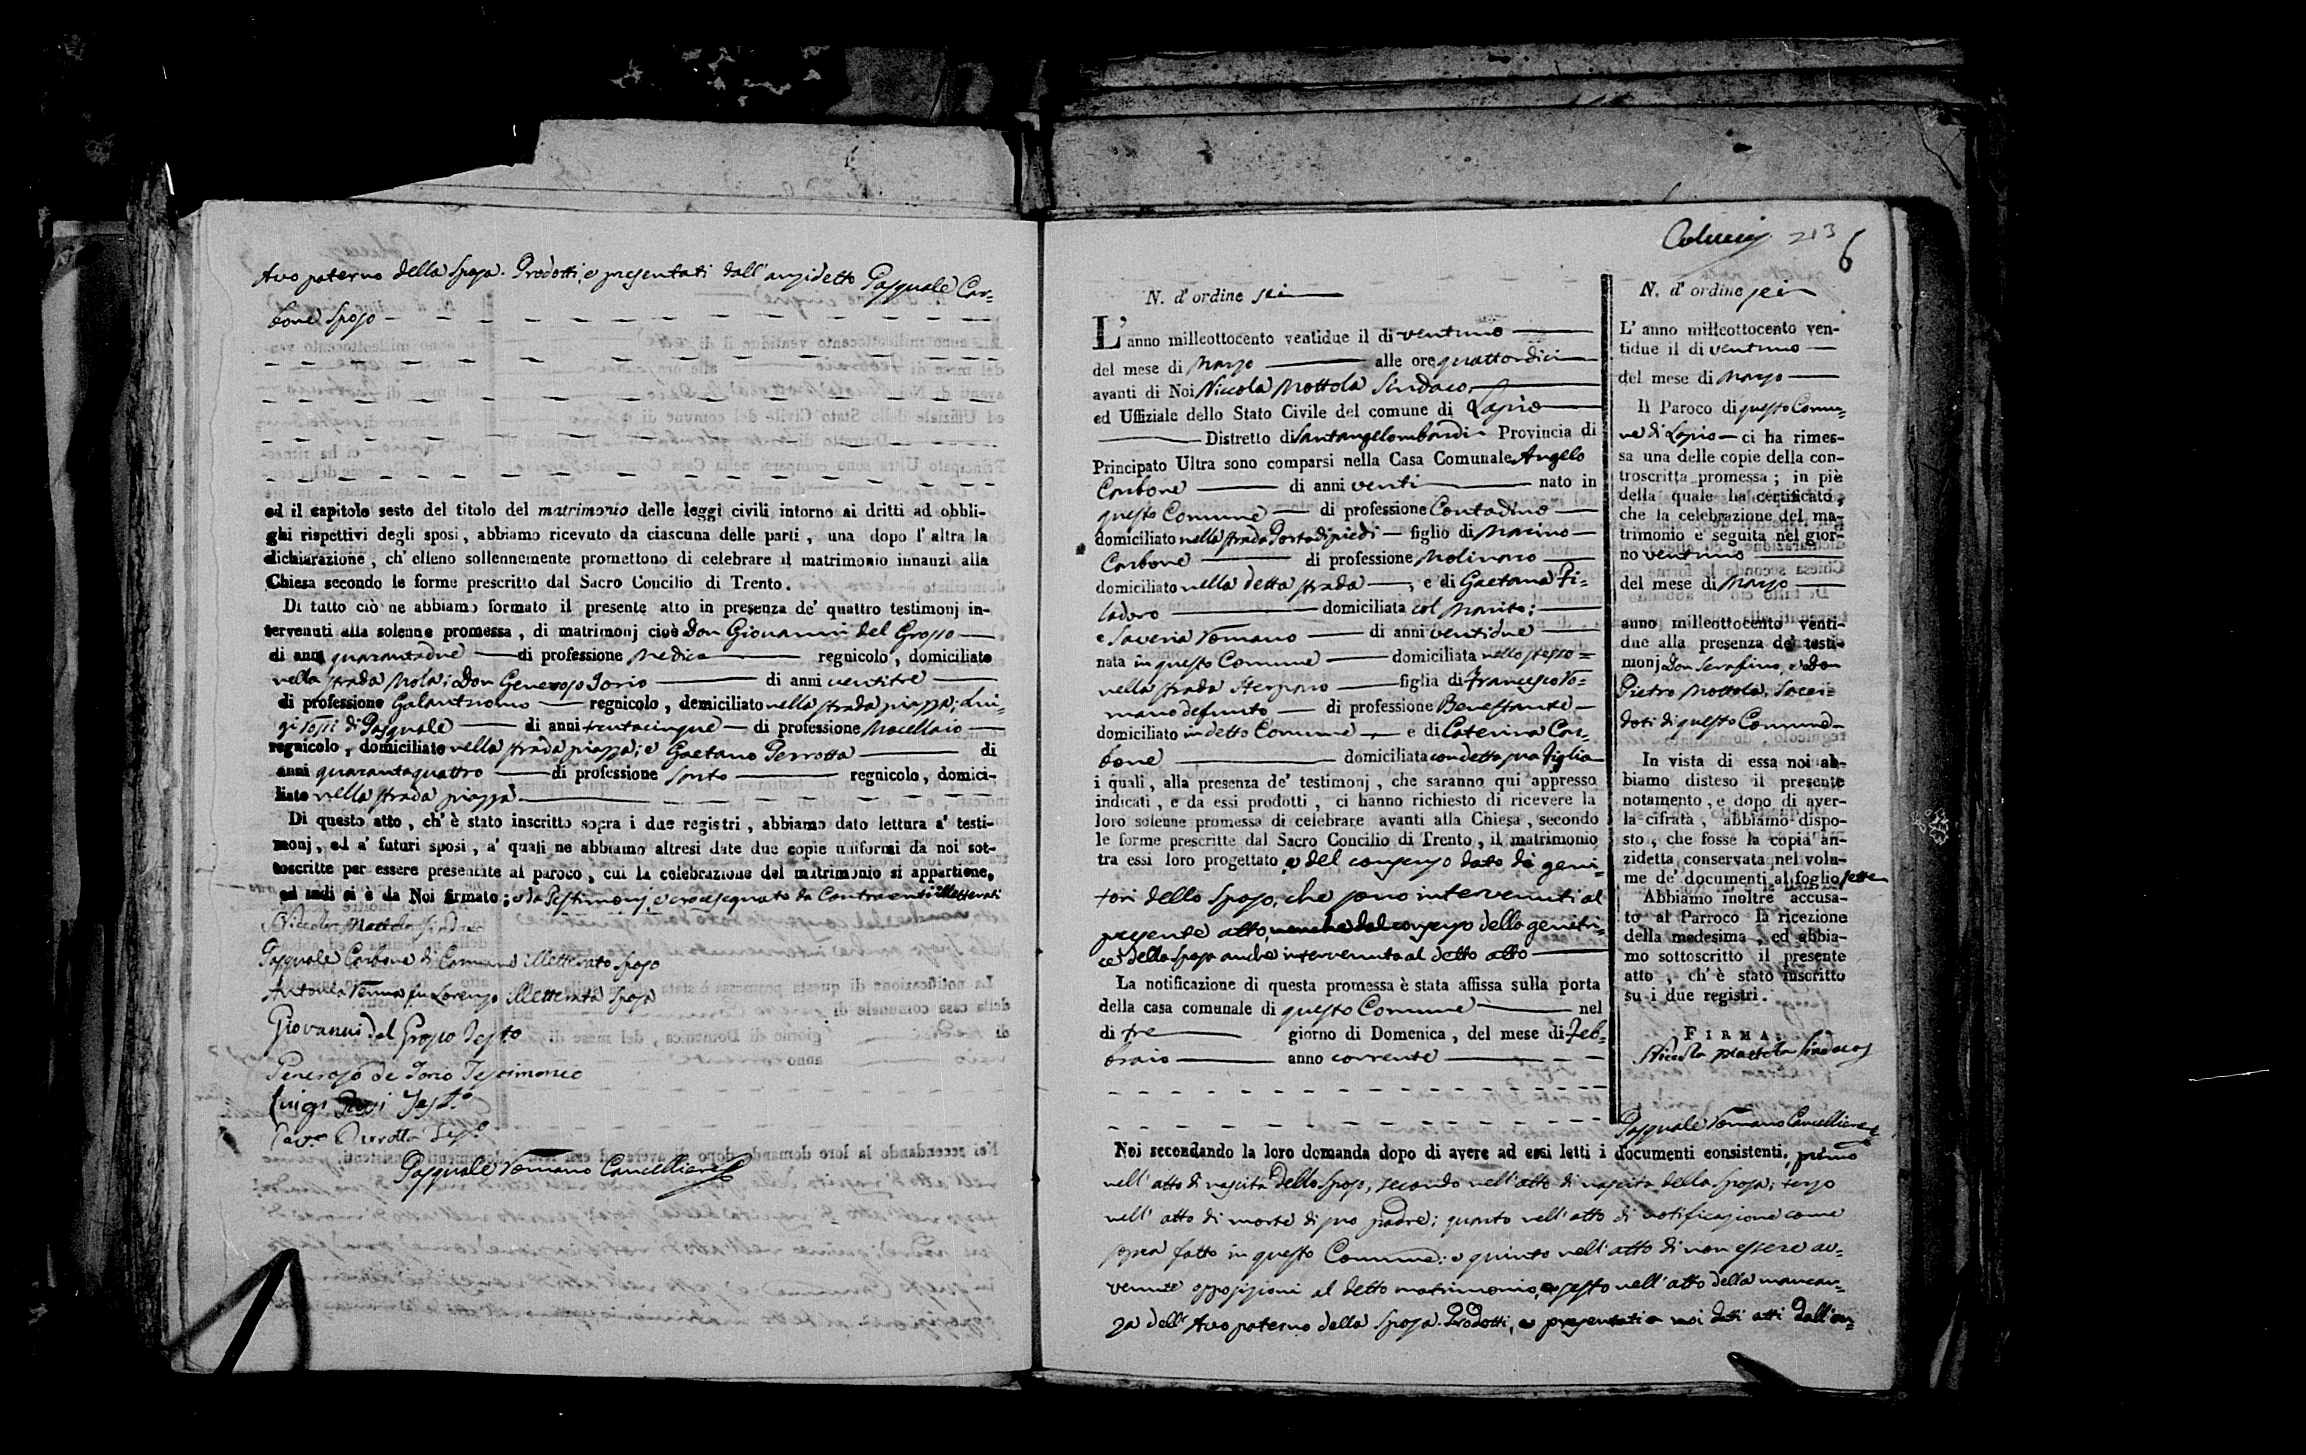 Avo paterno della Sposa. Prodotti, e presentati dall'anzidetto Pasquale Car=
bone Sposo
ed il capitolo sesto del titolo del matrimonio delle leggi civili intorno ai dritti ad obbli-
ghi rispettivi degli sposi, abbiamo ricevuto da ciascuna delle parti, una dopo l'altra la
dichiarazione, ch'elleno sollennemente promettono di celebrare il matrimonio innanzi alla
Chiesa secondo le forme prescritto dal Sacro Concilio di Trento.
Di tutto ciò ne abbiamo formato il presente atto in presenza de' quattro testimonj in-
tervenuti alla solenne promessa, di matrimonj cioè Don Giovanni del Grosso
di anni quarantadue di professione Medico regnicolo, domiciliato
nella strada Mola; Don Generoso Iorio di anni ventitre
di professione Galantuomo regnicolo, domiciliato nella strada piazza; Lui=
gi Tossi di Pasquale di anni trentacinque di professione Macellaio
regnicolo, domiciliato nella strada piazza; e Gaetano Perrotta di
anni quarantaquattro di professione Sarto regnicolo, domici-
liato nella strada piazza
Di questo atto, ch'è stato inscritto sopra i due registri, abbiamo dato lettura a' testi-
monj, ed a' futuri sposi, a' quali ne abbiamo altresì date due copie uniformi da noi sot-
toscritte per essere presentate al paroco, cui la celebrazione del matrimonio si appartiene,
ed indi si è da Noi firmato; e da Testimonj e crocesegnato da Contraenti illetterati
Niccola Mottola Sindaco
Pasquale Carbone di Carmine illetterato Sposo
Antonia Venna fu Lorenzo illetterata Sposa
Giovanni del Grosso Testo
Generoso de Iorio Testimonio
Luigi Testo
Perrotta Testo
Pasquale Romano Cancelliere
213
6
N. d'ordine sei
L'anno milleottocento ventidue il di ventuno
del mese di Marzo alle ore quattordici
avanti di Noi Niccola Mottola Sindaco,
ed Uffiziale dello Stato Civile del comune di Lapio
Distretto di Santangelombardi Provincia di
Principato Ultra sono comparsi nella Casa Comunale Angelo
Carbone di anni venti nato in
questo Comune di professione Contadino
domiciliato nella strada Porta di piedi figlio di Marino
Carbone di professione Molinaro
domiciliato nella detta strada, e di Gaetana Pi=
ladoro domiciliata col Marito;
e Saveria Romano di anni ventidue
nata in questo Comune domiciliata nello stesso=
nella strada figlia di Francesco Ro=
mano defunto di professione Benestante
domiciliato in detto Comune e di Caterina Car=
bone domiciliata con detta sua figlia
i quali, alla presenza de' testimonj, che saranno qui appresso
indicati, e da essi prodotti, ci hanno richiesto di ricevere la
loro solenne promessa di celebrare avanti alla Chiesa, secondo
le forme prescritte dal Sacro Concilio di Trento, il matrimonio
tra essi loro progettato, e del consenso dato da geni=
tori dello Sposo, che sono intervenuti al
presente atto, nonche dal consenso della genitri=
ce della Sposa anche intervenuta al detto atto
La notificazione di questa promessa è stata affissa sulla porta
della casa comunale di questo Comune nel
di tre giorno di Domenica, del mese di Feb=
braio anno corrente
Noi secondando la loro domanda dopo di avere ad essi letti i documenti consistenti, primo
nell'atto di nascita dello Sposo, secondo nell'atto di nascita della Sposa; terzo
nell'atto di morte di suo padre; quarto nell'atto di notificazione come
sopra fatto in questo Comune; e quinto nell'atto di non essere av=
venute opposizioni al detto matrimonio, e sesto nell'atto della mancan=
za dell'Avo paterno della Sposa. Prodotti, e presentati a noi detti atti dall'an=
N. d'ordine sei
L'anno milleottocento ven-
tidue il di ventuno
del mese di Marzo
Il Paroco di questo Comu=
ne di Lapio ci ha rimes-
sa una delle copie della con-
troscritta promessa; in piè
della quale ha certificato,
che la celebrazione del ma-
trimonio è seguita nel gior-
no ventuno
del mese di Marzo
anno milleottocento venti-
due alla presenza de' testi-
monj Don Serafino, e Don
Pietro Mottola, Sacer=
doti di questo Comune
In vista di essa noi ab-
biamo disteso il presente
notamento, e dopo di aver-
la cifrata, abbiamo dispo-
sto, che fosse la copia an-
zidetta conservata nel volu-
me de' documenti al foglio sette
Abbiamo inoltre accusa-
to al Parroco la ricezione
della medesima, ed abbia-
mo sottoscritto il presente
atto, ch'è stato inscritto
su i due registri.
FIRMA.
Niccola Mottola Sindaco
Pasquale Romano Cancelliere